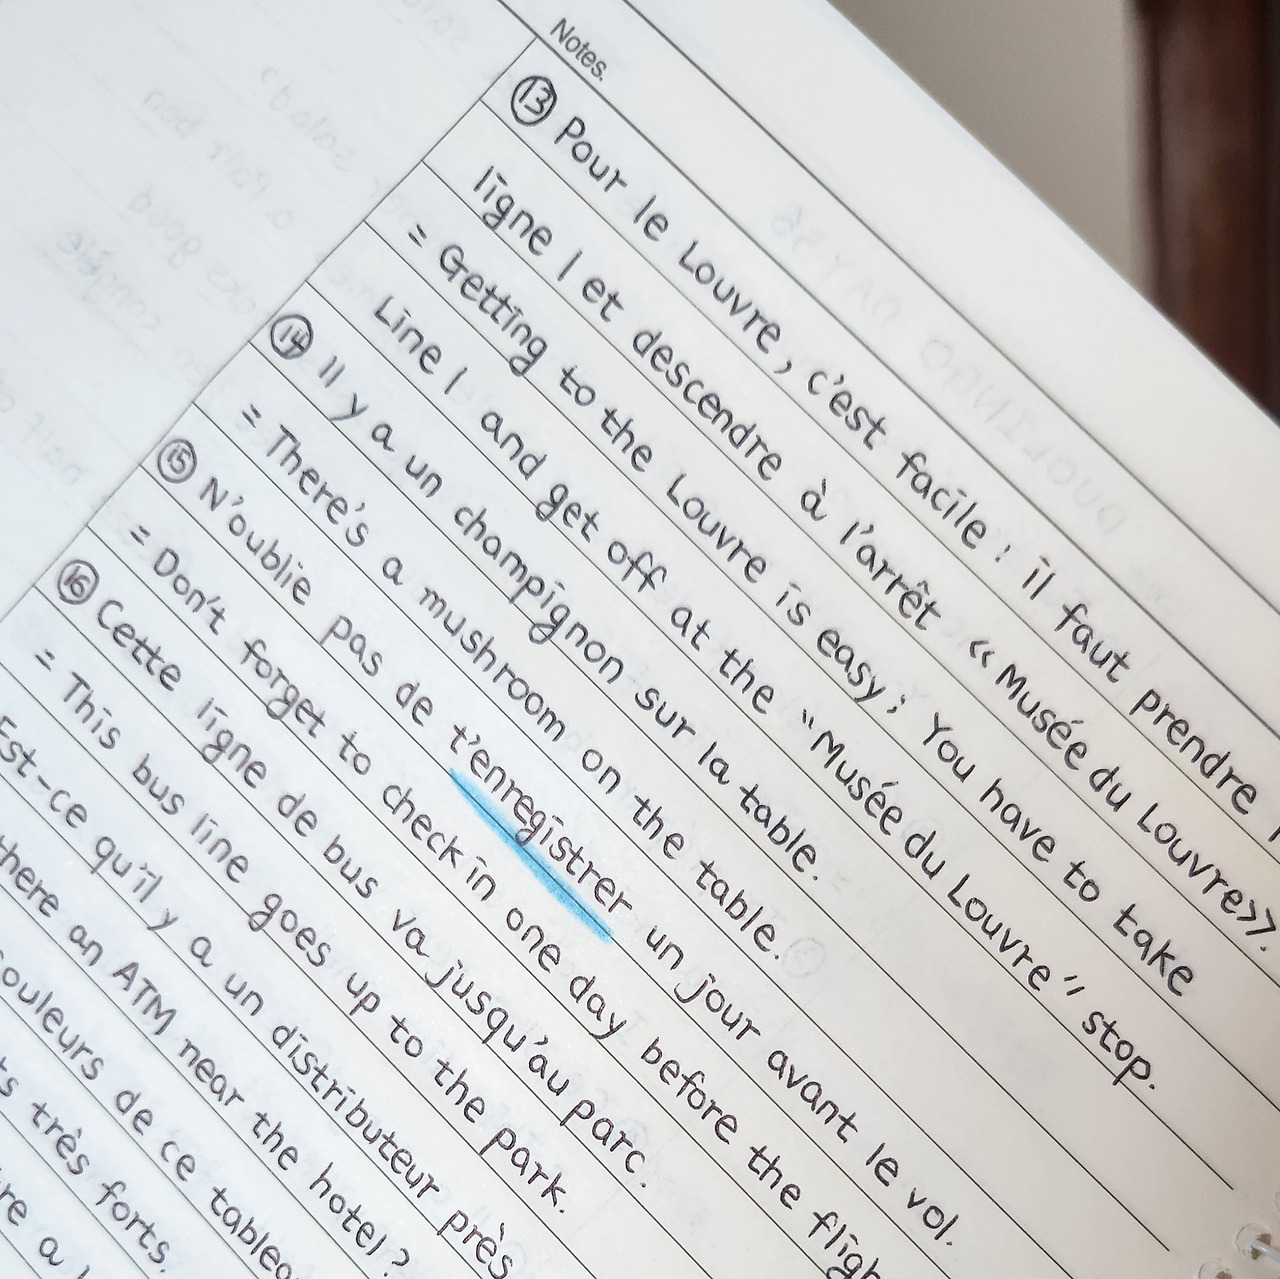 Notes.
⑬ Pour le Louvre, c'est facile : il faut prendre
ligne 1 et descendre à l'arrêt « Musée du Louvre».
= Getting to the Louvre is easy; You have to take
Line 1 and get off at the "Musée du Louvre" stop.
⑭ Il y a un champignon sur la table.
= There's a mushroom on the table.
⑮ N'oublie pas de t'enregistrer un jour avant le vol.
= Don't forget to check in one day before the
⑯ Cette ligne de bus va jusqu'au parc.
= This bus line goes up to the park.
Est-ce qu'il y a un distributeur près
there an ATM near the hotel?
de ce
très forts,
a